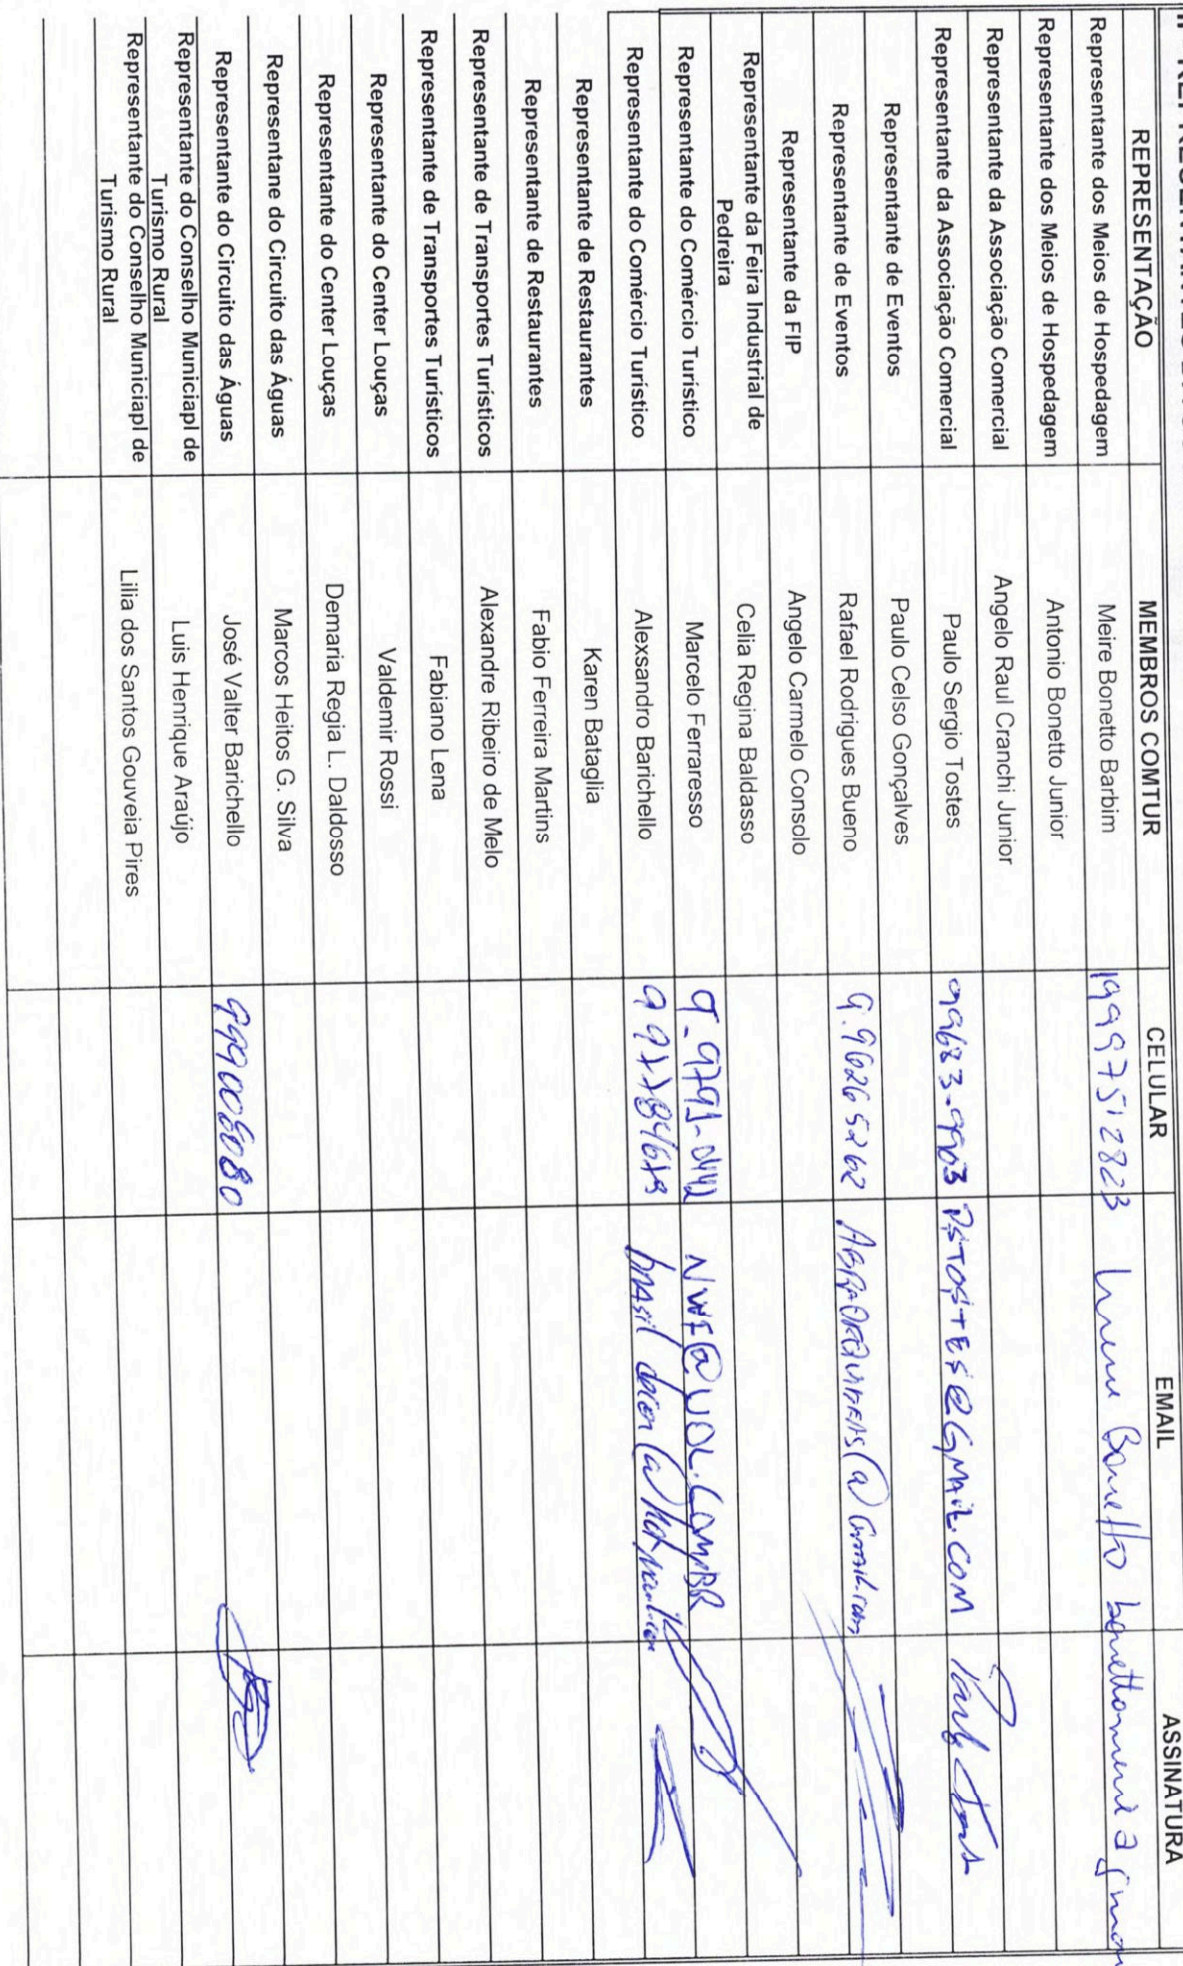 REPRESENTAÇÃO MEMBROS COMTUR CELULAR EMAIL ASSINATURA
Representante dos Meios de Hospedagem Meire Bonetto Barbim 19997512823 Bonetto
Representante dos Meios de Hospedagem Antonio Bonetto Junior
Representante da Associação Comercial Angelo Raul Cranchi Junior
Representante da Associação Comercial Paulo Sergio Tostes 99683-9903 PSTOSTES@GMAIL.COM
Representante de Eventos Paulo Celso Gonçalves
Representante de Eventos Rafael Rodrigues Bueno 9.96265262
Representante da FIP Angelo Carmelo Consolo
Representante da Feira Industrial de
Pedreira Celia Regina Baldasso
Representante do Comércio Turístico Marcelo Ferraresso NWF@UOL.COM.BR
Representante do Comércio Turístico Alexsandro Barichello
Representante de Restaurantes Karen Bataglia
Representante de Restaurantes Fabio Ferreira Martins
Representante de Transportes Turísticos Alexandre Ribeiro de Melo
Representante de Transportes Turísticos Fabiano Lena
Representante do Center Louças Valdemir Rossi
Representante do Center Louças Demaria Regia L. Daldosso
Representane do Circuito das Águas Marcos Heitos G. Silva
Representante do Circuito das Águas José Valter Barichello 999008080
Representante do Conselho Municiapl de
Turismo Rural Luis Henrique Araújo
Representante do Conselho Municiapl de
Turismo Rural Lilia dos Santos Gouveia Pires